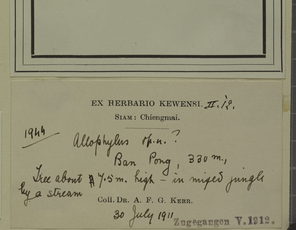 EX HERBARIO KEWENSI. II.'12.
SIAM: Chiengmai.
1944
Allophylus sp. n. ?
Ban Pong, 330 m,
Tree about 7.5 m. high – in mixed jungle
by a stream
Coll. DR. A. F. G. KERR.
30 July 1911
Zugegangen V.1912.